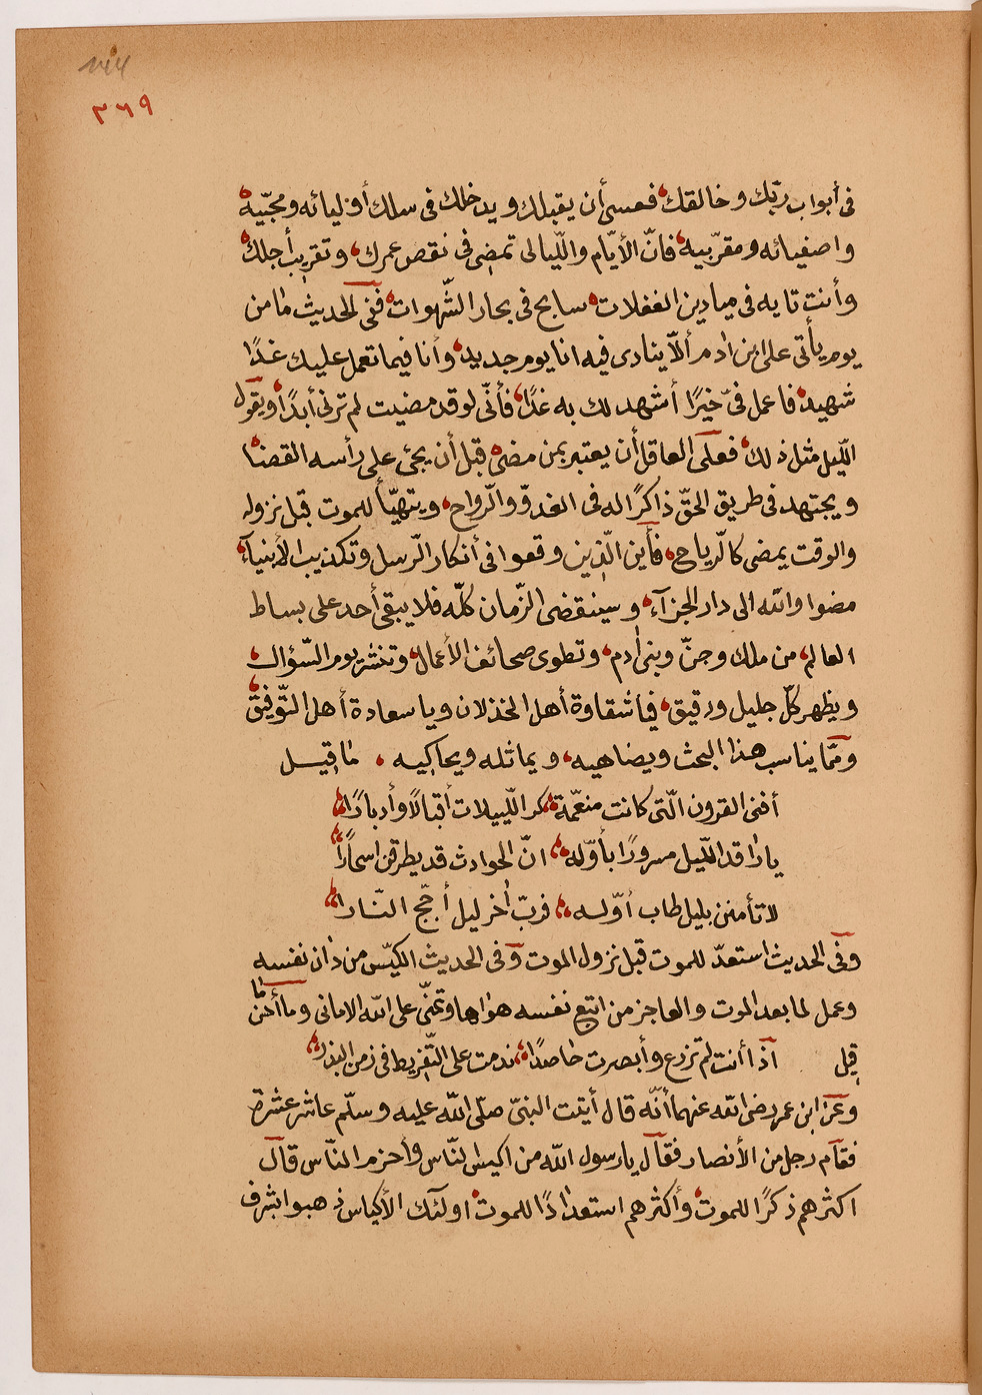 ٣٦٩
فى أبواب ربّك وخالقك، فعسى أن يقبلك ويدخلك فى سلك أوليائه ومحبّيه،
واصفيائه ومقرّبيه، فانّ الأيّام واللّيالى تمضى فى نقص عمرك، وتقريب أجلك،
وأنت تايه فى ميادين الغفلات، سابح فى بحار الشّهوات، ففى الحديث مٰا من
يوم يأتى على ابن ادم ألاّ ينادى فيه انا يوم جديد، وأنا فيما تعمل عليك غدًا
شهيد، فاعمل فىّ خيرًا أشهد لك به غدًا، فأنّى لو قد مضيت لم ترنى أبدًا، ويقول
اللّيل مثل ذلك، فعلى العاقل أن يعتبر بمن مضى، قبل أن يجئ على رأسه القضا،
ويجتهد فى طريق الحقّ ذاكرًا له فى الغدوّ والرّواح، ويتهيّأ للموت قبل نزوله
والوقت يمضى كالرّياح، فأين الّذين وقعوا فى أنكار الرّسل وتكذيب الأنبيآء،
مضوا واللّه الى دار الجزآء، وسينقضى الزّمان كلّه فلا يبقى أحد على بساط
العالم، من ملك وجنّ وبنى اٰدم، وتطوى صحائف الأعمال، وتنشر يوم السّؤال،
ويظهر كلّ جليل ودقيق، فيا شقاوة أهل الخذلان ويا سعادة أهل التّوفيق،
وممّا يناسب هذا البحث ويضاهيه، ويماثله ويحاكيه، مٰا قيل
أفنى القرون الّتى كانت منعّمة، كر اللّييلات أقبالًا وأدبارًا،
يا رٰاقد اللّيل مسرورًا بأوّله، انّ الحوادث قد يطرقن اسحارًا،
لا تأمنن بليل طاب أوّله، فربّ اٰخر ليل أجّج النّارا،
وفى الحديث استعدّ للموت قبل نزول الموت وفى الحديث الكيّس من دٰان نفسه
وعمل لما بعد الموت والعاجز من اتبع نفسه هواها وتمنّى على اللّه الامانى وما أحسن مٰا
قيل اذا أنت لم تزرع وأبصرت حٰاصدًا، ندمت على التّفريط فى زمن البذر،
وعن ابن عمر رضى اللّه عنهما أنّه قال أتيت النبىّ صلّى اللّه عليه وسلّم عاشر عشرة
فقام رجل من الأنصار فقال يا رسول اللّه من اكيس النّاس وأحزم النّاس قال
اكثرهم ذكرًا للموت، وأكثرهم استعدٰادًا للموت، اولئك الأكياس ذهبوا بشرف